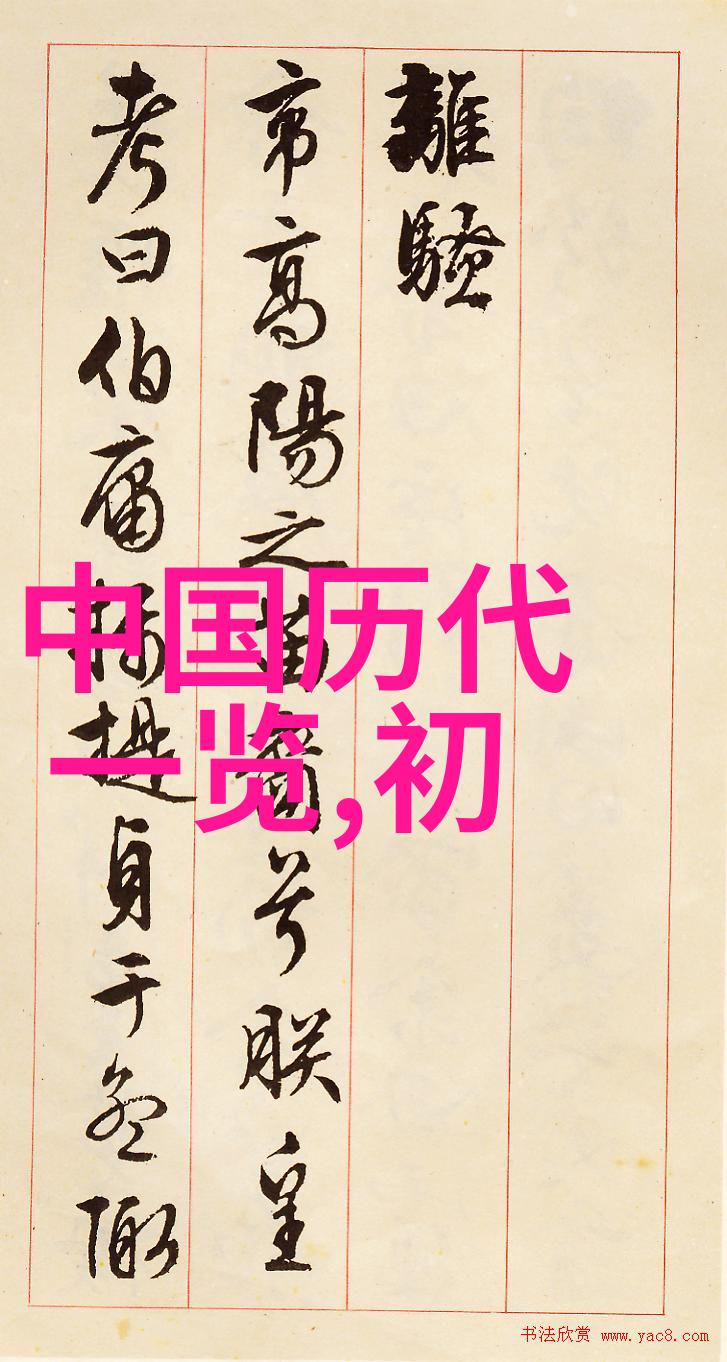 離騷
帝高陽之苗裔兮朕皇
考曰伯庸攝提貞于孟陬
中国历代
一览,初
书法欣赏 www.yac8.com